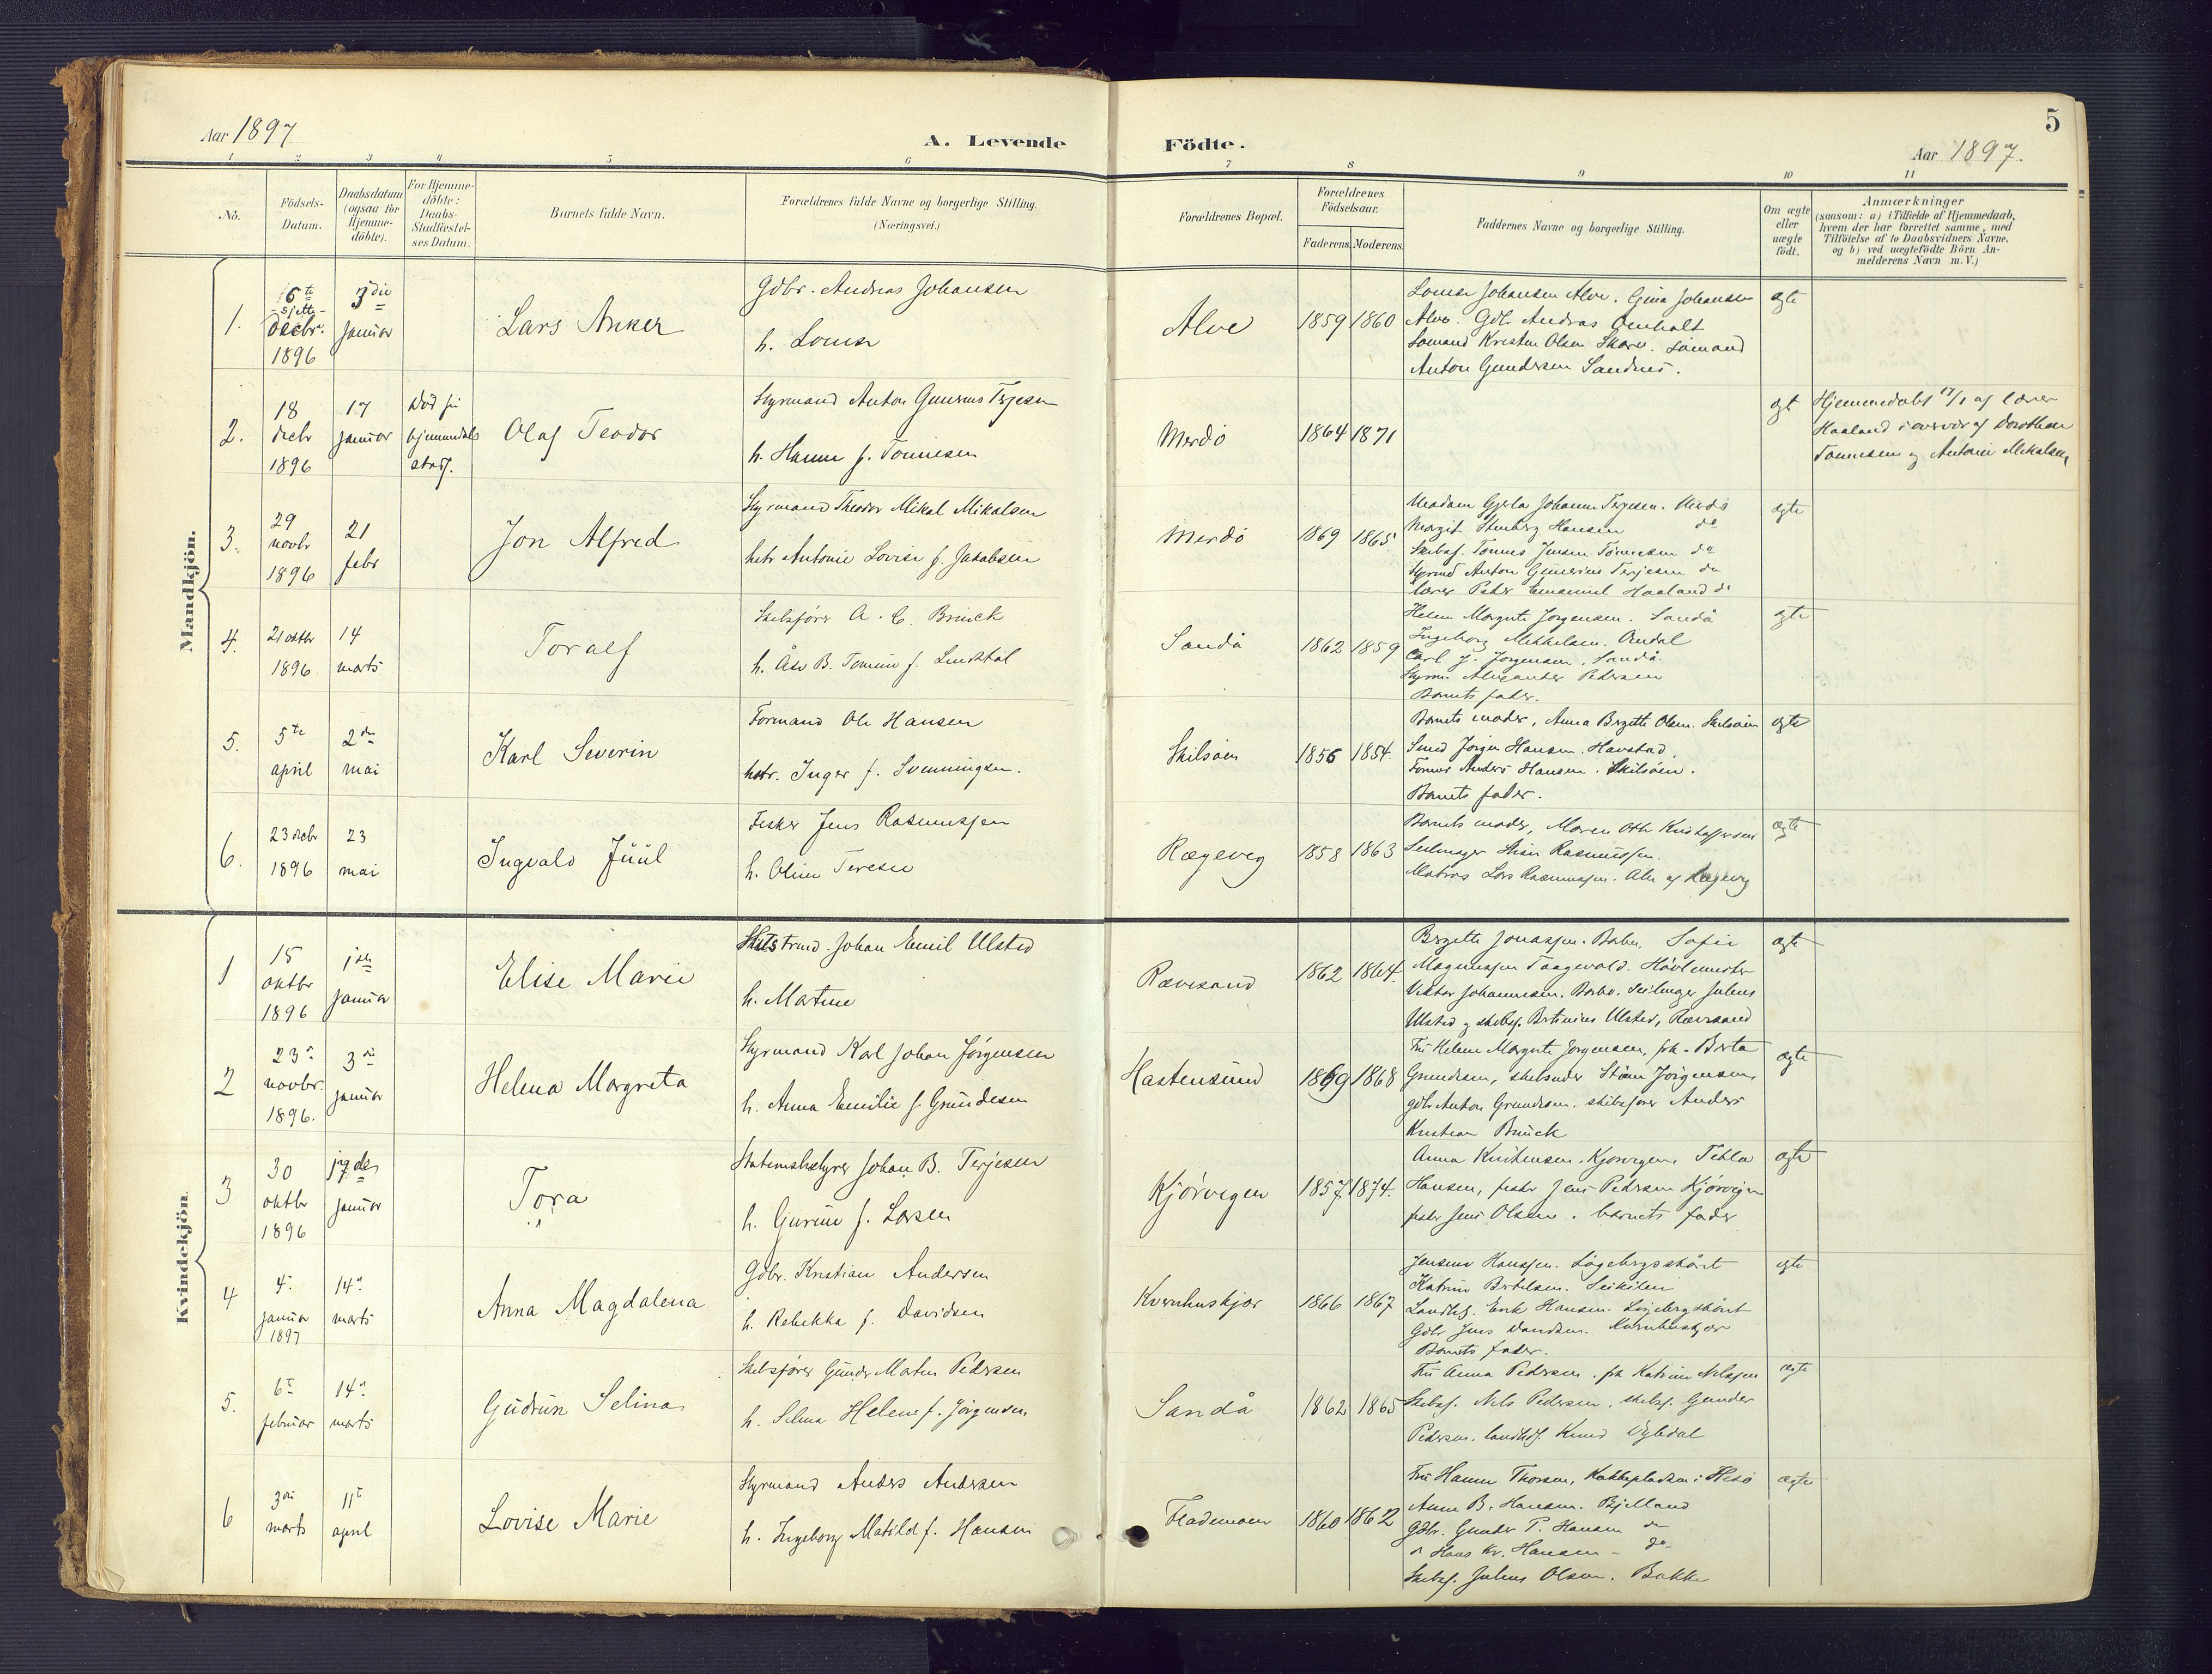 5
Aar 1897
A. Levende
Födte.
Aar 1897.
1 2 3 4 5 6 7 8 9 10 11
No.
Födsels-
Datum.
Daabsdatum
(ogsaa for
Hjemme-
döbte).
For Hjemme-
döbte:
Daabs-
Stadfæstel-
ses Datum.
Barnets fulde Navn.
Forældrenes fulde Navne og borgerlige Stilling.
(Næringsvei.)
Forældrenes Bopæl.
Forældrenes
Födselsaar.
Faderens. Moderens.
Faddernes Navne og borgerlige Stilling.
Om ægte
eller
uægte
födt.
Anmærkninger
(saasom: a) i Tilfælde af Hjemmedaab,
hvem der har forrettet samme, med
Tilföielse af to Daabsvidners Navne.
og b) ved uægtefödte Börn An-
melderens Navn m. V.)
Mandkjön.
1.
6te
sjette
decbr.
1896
3die
januar
Lars Anker
Gdbr. Andreas Johansen
h. Lovise
Alve
1859 1860
Lovise Johansen Alve. Gina Johansen
Alve. Gdb. Andreas
Sømand Kristen Olsen Skare. sømand
Anton Gundersen Sandnes.
ægte
2.
18
decbr
1896
17
januar
død før
hjemmedaabs
stadf.
Olaf Teodor
Styrmand Anton Gunerius Terjesen
h. Hanne f. Tønnesen
Merdø
1864 1871
ægt
Hjemmedøbt 17/1 af lærer
Haaland i overvær af Dorothea
Tønnesen og Antonie Mikalsen
3.
29
novbr
1896
21
febr
Jon Alfred
Styrmand Theodor Mikal Mikalsen
hstr Antonie Lovise f. Jakobsen
Merdø
1869 1865
Madam Gjerla Johanne Terjesen. Merdø
Margit Stenberg Hansen do
Skibsf. Tønnes Jensen Tønnesen do
Styrmd Anton Gunerius Terjesen do
lærer Peder Emanuel Haaland do
ægte
4.
21 oktbr
1896
14
marts
Toralf
Skibsfører A. C. Bruick
h. Åse B. Tomine f. Lindtdal
Sandå
1862 1859
Helene Margrete Jørgensen. Sandå
Ingeborg Mikkelsen. Arendal
Carl J. Jørgensen. Sandå.
Styrm. Alexander Pedersen
Barnets fader.
ægte
5.
5te
april
2den
mai
Karl Severin
Formand Ole Hansen
hstr. Inger f. Svenningsen.
Skilsøen
1856 1854.
Barnets moder, Anna Birgitte Olsen. Skilsøen
Smed Jørgen Hansen. Havstad.
Anders Hansen. Skilsøen.
Barnets fader.
ægte
6.
23 decbr
1896
23
mai
Ingvald Jüül
Fisker Jens Rasmussen
h. Oline Terese
Rægevig
1858 1863
Barnets moder, Maren Otte Kristoffersen
Seilmager Rasmussen.
Matros Lars Rasmussen. Alle af Rægevig
ægte
Kvindekjön
1
15
oktbr
1896
1ste
januar
Elise Marie
Skibstmd. Johan Emil Ulsted
h. Martine
Rævesand
1862 1864.
Birgitte Jonassen. Barbu. Sofie
Magnussen Taagevold. Høvlemester
Viktor Johannesen. Barbu. Seilmager Julius
Ulsted og skibsf. Bertinius Ulsted, Rævesand
ægte
2
23de
novbr.
1896.
3die
januar
Helena Margreta
Styrmand Karl Johan Jørgensen
h. Anna Emilie f. Grundesen
Hastensund
1869 1868
Fru Helene Margrete Jørgensen, frk. Berta
Grundesen, skibsreder Jørgensen,
gdbr Anton Grundesen. skibsfører Anders
Kristian Bruick
ægte
3
30
oktbr
1896
17de
januar
Tora
"
Johan B. Terjesen
h. Gurine f. Larsen
Kjörvigen
1857 1874.
Anna Knutsensen. Kjørvigen, Tekla
Hansen, fisker Jens Pedersen Kjørvigen
fisker Jens Olsen. barnets fader
ægte
4
4de
januar
1897
14de
marts
Anna Magdalena
Gdbr. Kristian Andersen
h. Rebekka f. Davidsen
Kvernhuskjær
1866 1867
Jensine Hanssen.
Katrine Bertelsen.
Erik Hansen.
Gdbr Jens Davidsen. Kvernhuskjær
Barnets fader.
ægte
5.
6te
februar
14de
marts
Gudrun Selina
Skibsfører Gunder Martin Pedersen
h. Selma Helene f. Jørgensen
Sandå
1862 1865
Fru Anna Pedersen. frk Katrine Nilssen
Skibsf. Nels Pedersen, skibsf. Gunder
Pedersen. Knud
ægte
6
3die
marts
11te
april
Lovise Marie
Styrmand Anders Andersen
h. Ingeborg Matilde f. Hansen
Flademoen
1860 1862
Fru Hanne Thorsen, Kokkepladsen i Hisø
Anne B. Hansen. Bjelland
Gdbr. Gunder T. Hansen do
do Hans Kr. Hansen - do
Skibsf. Julius Olsen. Bakke
ægte